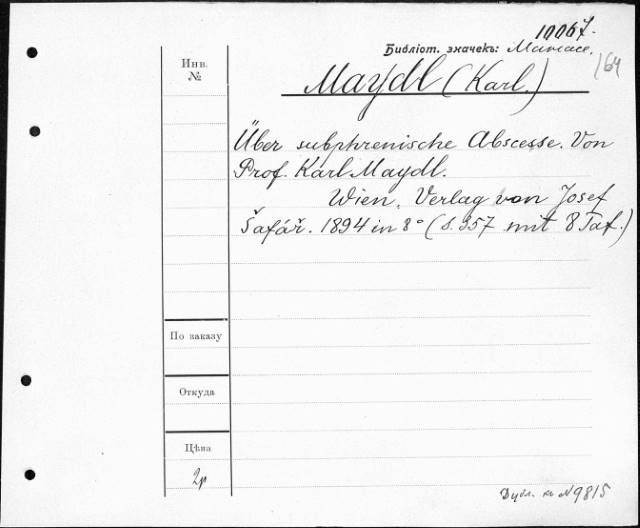 10067.
Библіот. значекъ:
164
Инв.
№
Maydl (Karl.)
Über subphrenische Abscesse. Von
Prof. Karl Maydl.
Wien, Verlag von Josef
Šafář. 1894 in 8° (S. 357 mit 8 Taf.)
По заказу
Откуда
Цѣна
2р
Дубл. къ №9815